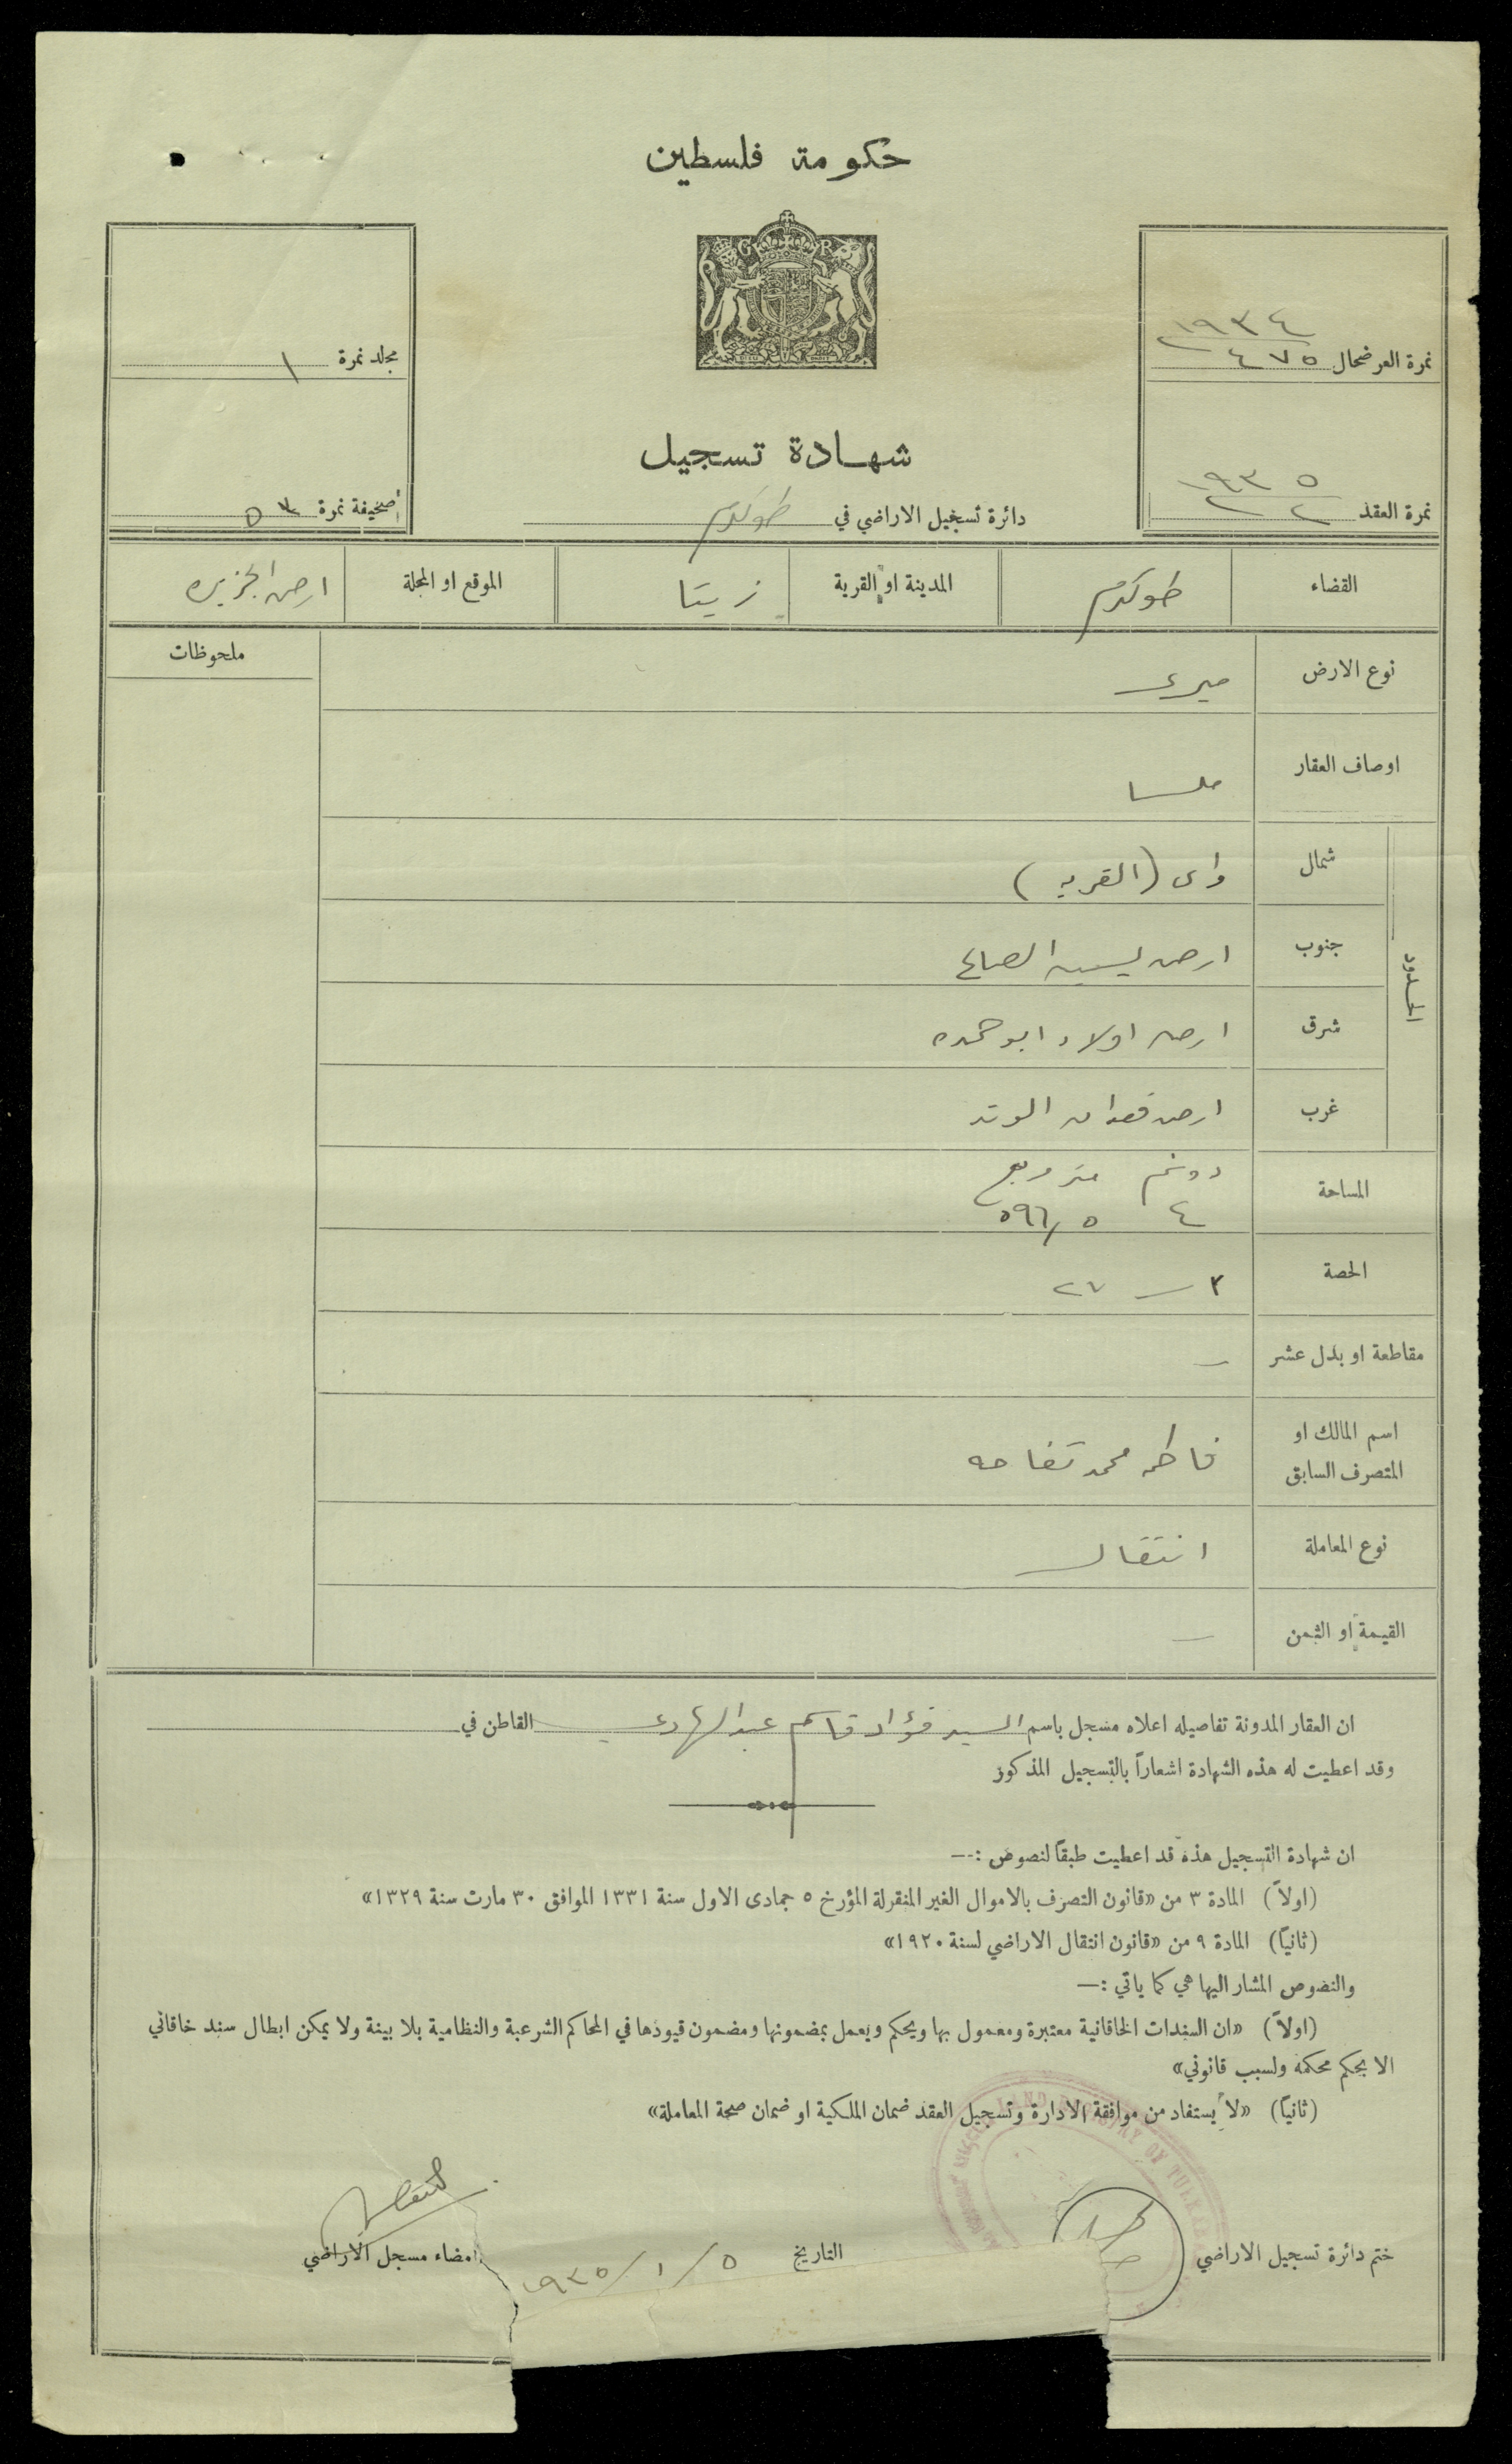 حكومة فلسطين
نمرة العرضحال ١٩٣٤ / ٤٧٥
مجلد نمرة ١
شهادة تسجيل
نمرة العقد ١٩٣٥ / ٢٢
دائرة تسجيل الاراضي في طولكرم
صحيفة نمرة ٥٣
القضاء طولكرم المدينة او القرية زيتا الموقع او المحلة ارض الجزيره
ملحوظات
نوع الارض ميري
اوصاف العقار ملسا
الحدود
شمال واد (القريه)
جنوب ارض الصالح
شرق ارض اولاد ابو حمده
غرب ارض
المساحة دونم متر مربع
٤ ٥٩٦/٥
الحصة ٢ ــ ٢٧
مقاطعة او بدل عشر ــ
اسم المالك او
المتصرف السابق فاطمه محمد تفاحه
نوع المعاملة انتقال
القيمة او الثمن ــ
ان العقار المدونة تفاصيله اعلاه مسجل باسم السيد فؤاد قاسم عبد الهادي القاطن في
وقد اعطيت له هذه الشهادة اشعاراً بالتسجيل المذكور
ان شهادة التسجيل هذه قد اعطيت طبقاً لنصوص :—
(اولاً) المادة ٣ من «قانون التصرف بالاموال الغير المنقولة المؤرخ ٥ جمادى الاول سنة ١٣٣١ الموافق ٣٠ مارت سنة ١٣٢٩»
(ثانياً) المادة ٩ من «قانون انتقال الاراضي لسنة ١٩٢٠»
والنصوص المشار اليها هي كما ياتي :—
(اولاً) «ان السندات الخاقانية معتبرة ومعمول بها ويحكم ويعمل بمضمونها ومضمون قيودها في المحاكم الشرعية والنظامية بلا بينة ولا يمكن ابطال سند خاقاني
الا بحكم محكمة ولسبب قانوني»
(ثانياً) «لا يستفاد من موافقة الادارة وتسجيل العقد ضمان الملكية او ضمان صحة المعاملة»
ختم دائرة تسجيل الاراضي
التاريخ ٥/١/١٩٣٥
امضاء مسجل الاراضي